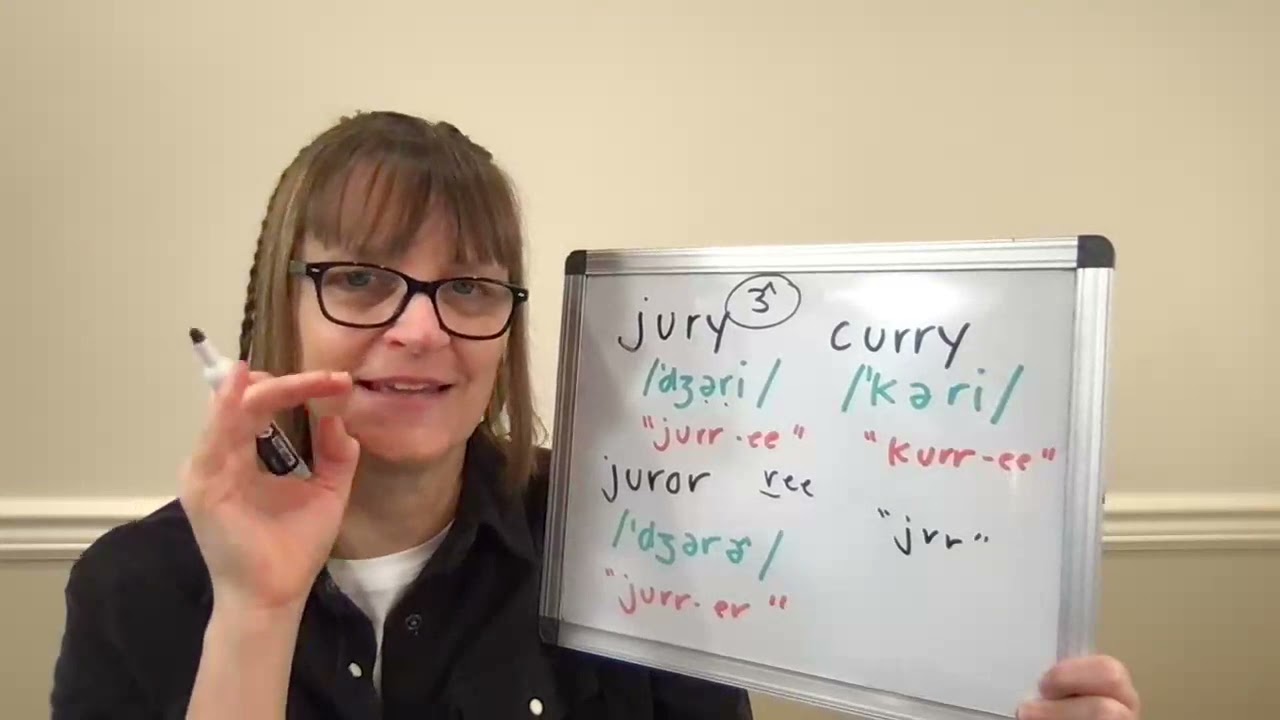 jury ɝ curry
/ˈdʒəri/ /ˈkəri/
"jurr-ee" "kurr-ee"
juror ree
/ˈdʒərɚ/ "jrr"
"jurr-er"